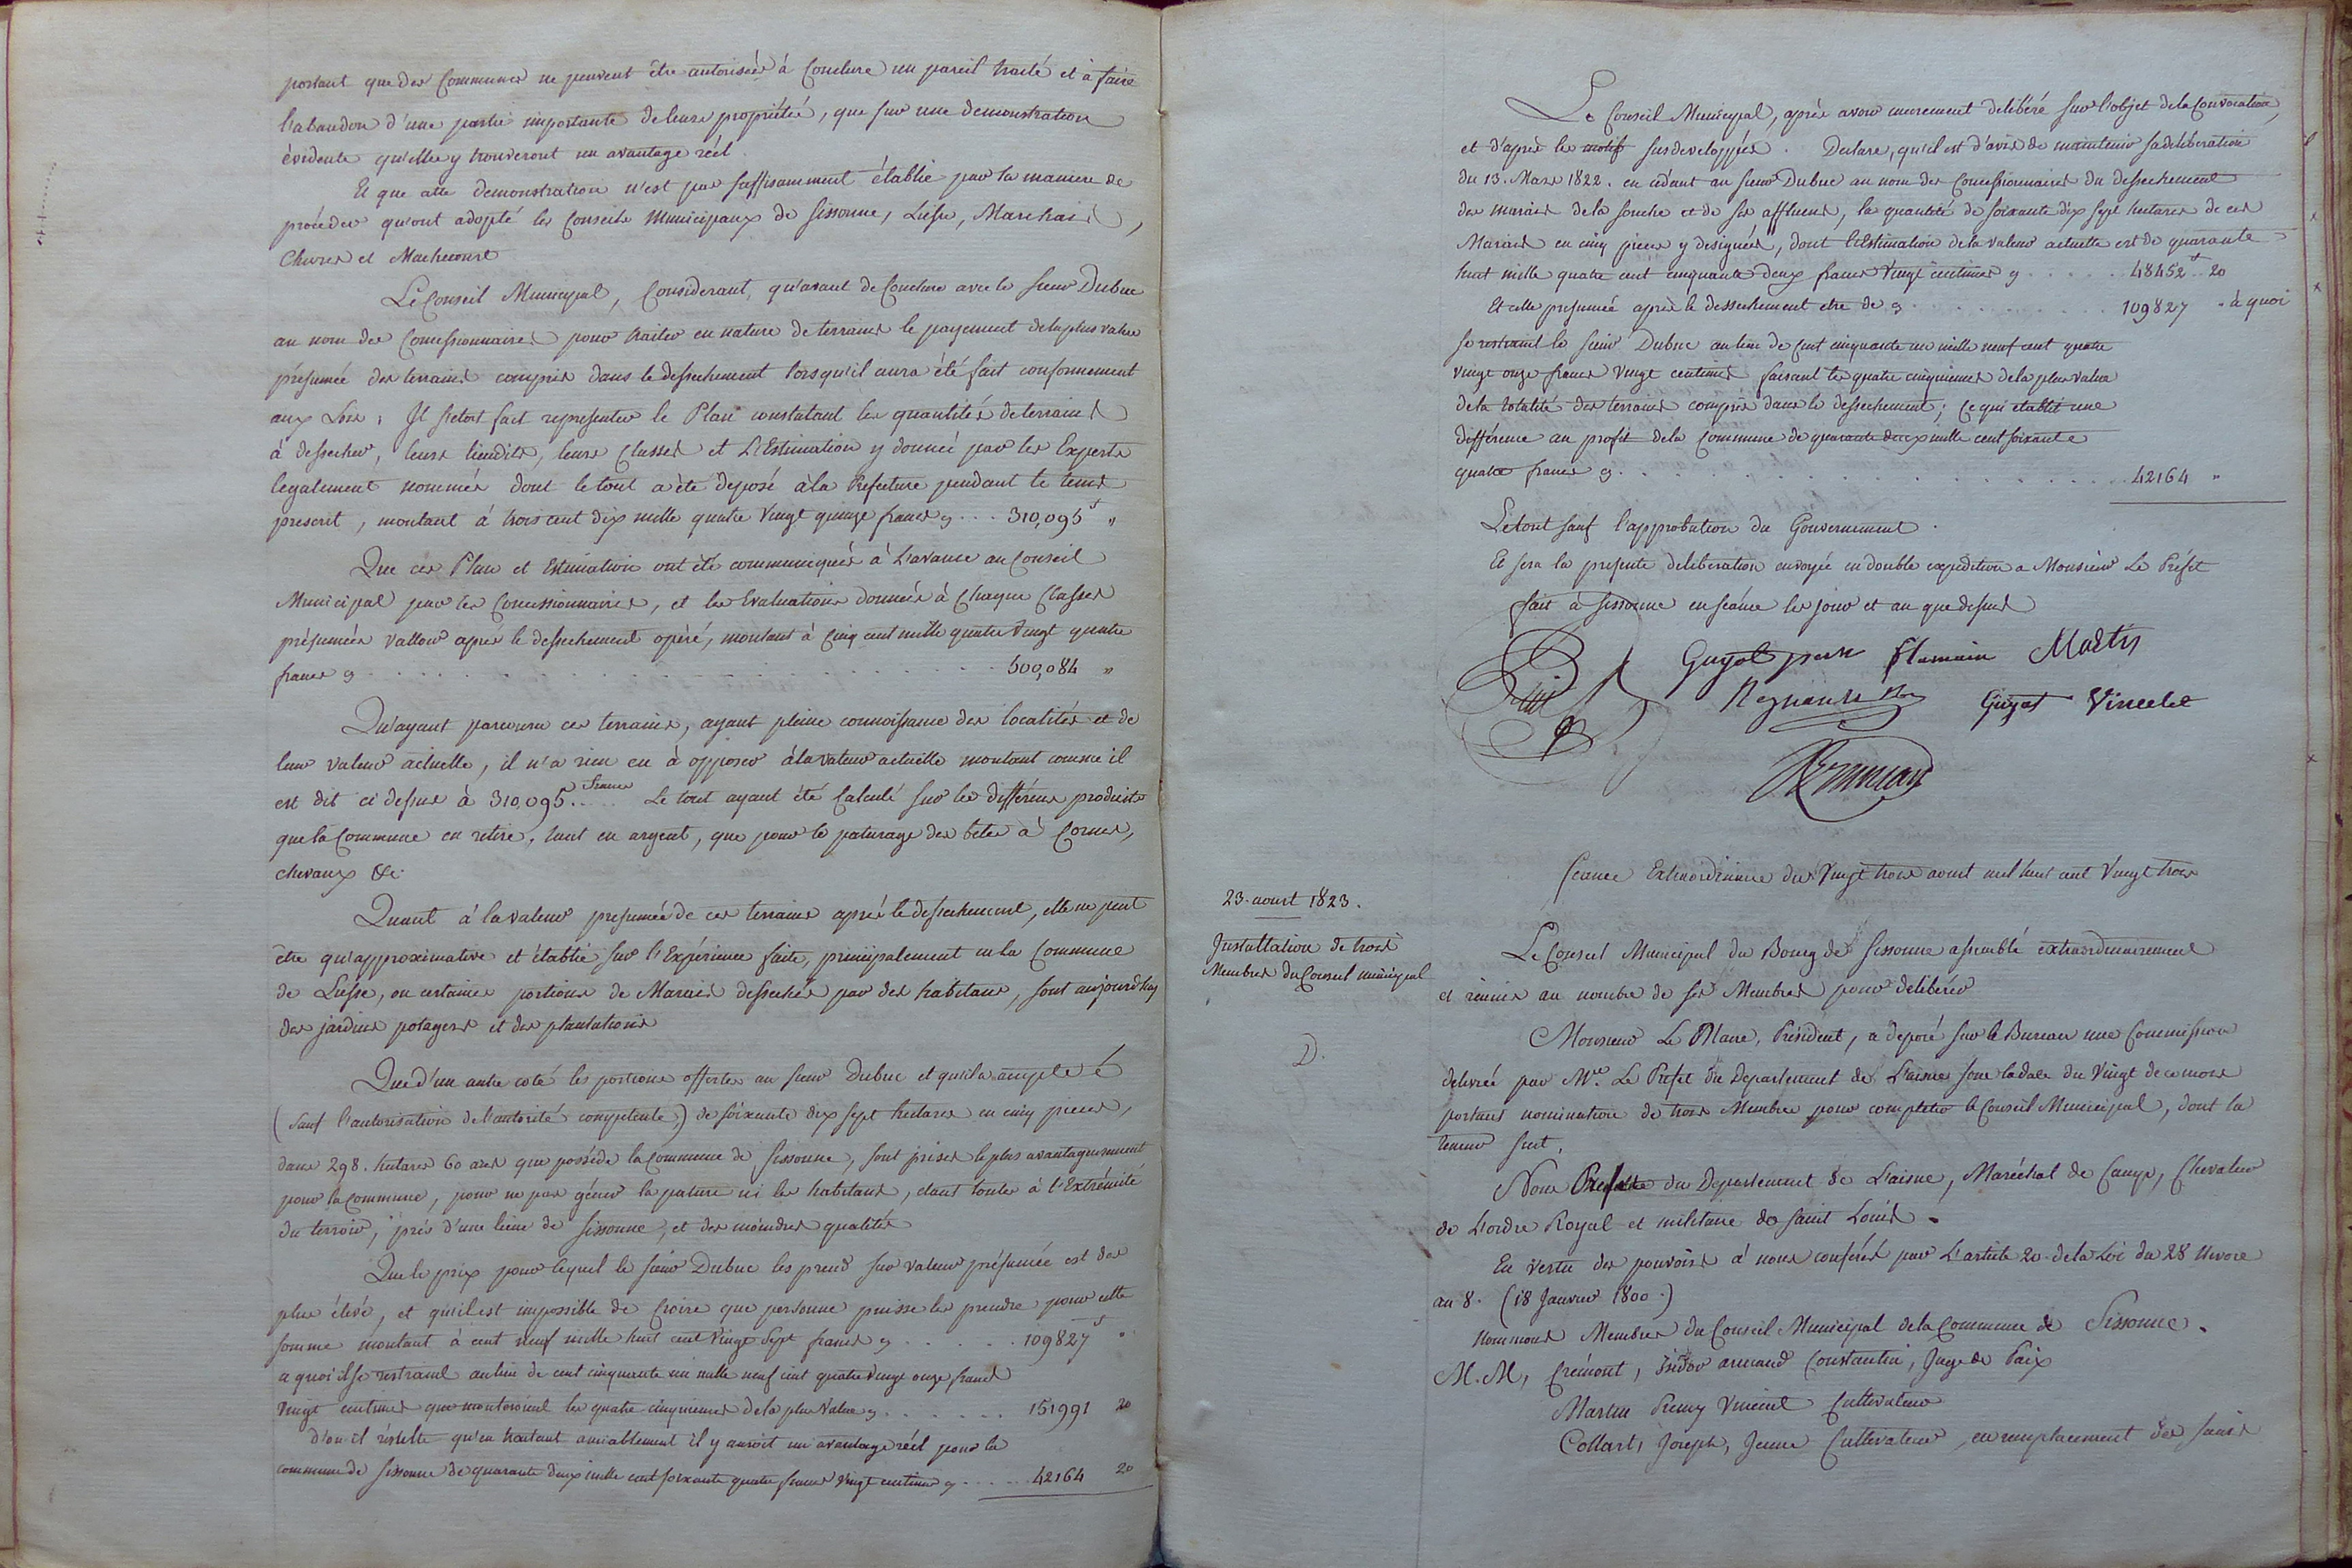 portant que des Communes ne peuvent être autorisées à Conclure un pareil traité et à faire
l'abandon d'une partie importante de leurs propriétés, que sur une demonstration
évidente qu'elles y trouveront un avantage réel.
Et que cette demonstration n'est pas suffisamment établie par la maniere de
proceder qu'ont adopté les Conseils Municipaux de Sissonne, Liesse, Marchais,
Chivres et Machecourt
Le Conseil Municipal, Considerant, qu'avant de Conclure avec le Sieur Dubuc
au nom des Concessionnaires pour traiter en nature de terrains le payement de la plus value
présumée des terrains compris dans le dessechement lorsqu'il aura été fait conformement
aux Lois; Il s'etoit fait representer le Plan constatant les quantités de terrains
à dessecher, leurs lieudits, leurs Classes et L'Estimation y donnée par les Experts
legalement nommés dont le tout a été deposé à la Prefecture pendant le tems
prescrit, montant à trois cent dix mille quatre Vingt quinze francs cy ... 310,095 f "
Que ces Plan et Estimation ont été communiqués à L'avance au Conseil
Municipal par les Concessionnaires, et les Evaluations données à Chaque Classes
présumées valloir après le dessechement opéré, montant à Cinq cent mille quatre Vingt quatre
francs cy . . . . . . . . . . 500,084 "
Qu'ayant parcouru ces terrains, ayant pleine connoissance des localités et de
leur valeur actuelle, il n'a rien eu à opposer à la valeur actuelle montant comme il
est dit ci dessus à 310,095 francs .... Le tout ayant été Calculé sur les différens produits
que la Commune en retire, tant en argent, que pour le paturage des betes à Cornes,
chevaux &c.
Quant à la valeur presumée de ces terrains après le dessechement, elle ne peut
être qu'approximative et établie sur l'Expérience faite, principalement en la Commune
de Liesse, ou certaines portions de Marais dessechés par des habitans, sont aujourd'huy
des jardins potagers et des plantations
Que d'un autre coté les portions offertes au sieur Dubuc et qu'il a accepté
(sauf l'autorisation de l'autorité compétente,) de soixante dix sept hectares en cinq pieces,
dans 298. hectares 60 ares que possède la Commune de Sissonne, sont prises le plus avantageusement
pour la Commune, pour ne pas géner la pature ni les habitans, étant toutes à l'Extrémité
du terroir, près d'une lieue de Sissonne, et des moindres qualités
Que le prix pour lequel le sieur Dubuc les prend sur valeur présumée est des
plus élevé, et qu'il est impossible de Croire que personne puisse les prendre pour cette
somme montant à cent neuf mille huit cent Vingt Sept francs cy . . . . . 109827 f "
a quoi il se restraint au lieu de cent cinquante un mille neuf cent quatre Vingt onze francs
Vingt centimes que monteroient les quatre cinquiemes de la plus Value cy . . . . . 151991 20
d'ou il résulte qu'en traitant amiablement il y auroit un avantage réel pour la
commune de Sissonne de quarante deux mille cent soixante quatre francs Vingt centimes cy . . . . 42164 20
Le Conseil Municipal, après avoir murement delibéré sur l'objet de la Convocation,
et d'après les motifs susdeveloppés. Declare, qu'il est d'avis de maintenir sa deliberation
du 13. Mars 1822. en cedant au sieur Dubuc au nom des Concessionnaires du dessechement
des marais de la Souche et de ses affluens, la quantité de soixante dix sept hectares de ces
Marais en cinq pieces y designées, dont l'Estimation de la valeur actuelle est de quarante
huit mille quatre cent cinquante deux francs Vingt centimes cy . . . . . . 48452 f 20
Et celle presumée après le dessechement etre de cy . . . . . . . . . 109827 " à quoi
se restraint le sieur Dubuc au lieu de Cent cinquante un mille neuf cent quatre
Vingt onze francs Vingt centimes faisant les quatre cinquiemes de la plus value
de la totalité des terrains compris dans le dessechement; Ce qui etablit une
différence au profit de la Commune de quarante deux mille cent soixante
quatre francs cy . . . . . . . . . . . . . 42164 "
Le tout sauf l'approbation du Gouvernement.
Et sera la presente deliberation envoyée en double expedition a Monsieur Le Préfet
fait à Sissonne en séance les jour et an que dessus
Guyot pere Flamain Martin
Guyot Vincelet
Seance Extraordinaire du Vingt trois aout mil huit cent Vingt trois
23. aoust 1823.
Installation de trois
Membres du Conseil municipal
D.
Le Conseil Municipal du Bourg de Sissonne assemblé extraordinairement
et reunis au nombre de ses Membres pour deliberer
Monsieur Le Maire, Président, a deposé sur le Bureau une Commission
delivrée par Mr. Le Prefet du Departement de L'aisne sous la date du Vingt de ce mois
portant nomination de trois Membres pour completer le Conseil Municipal, dont la
teneur suit,
Nous Prefet du Departement de L'aisne, Maréchal de Camp, Chevalier
de L'ordre Royal et militaire de Saint Louis.
En vertu des pouvoirs à nous conférés par L'article 20. de la Loi du 28 Nivose
an 8. (18 Janvier 1800.)
nommons Membres du Conseil Municipal de la Commune de Sissonne.
M.M, Crémont, Isidor armand Constantin, Juge de Paix
Martin Remy Vincent Cultivateur
Collart, Joseph, Jeune Cultivateur, en remplacement des sieurs